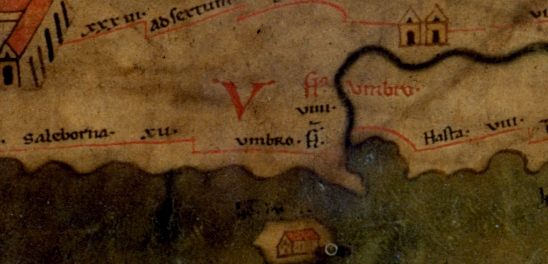 XXXIII. ad sextum
VI
V
fl. Vmbro.
VIIII.
Saleborna. XII. Vmbro. fl. Hasta. VIIII.